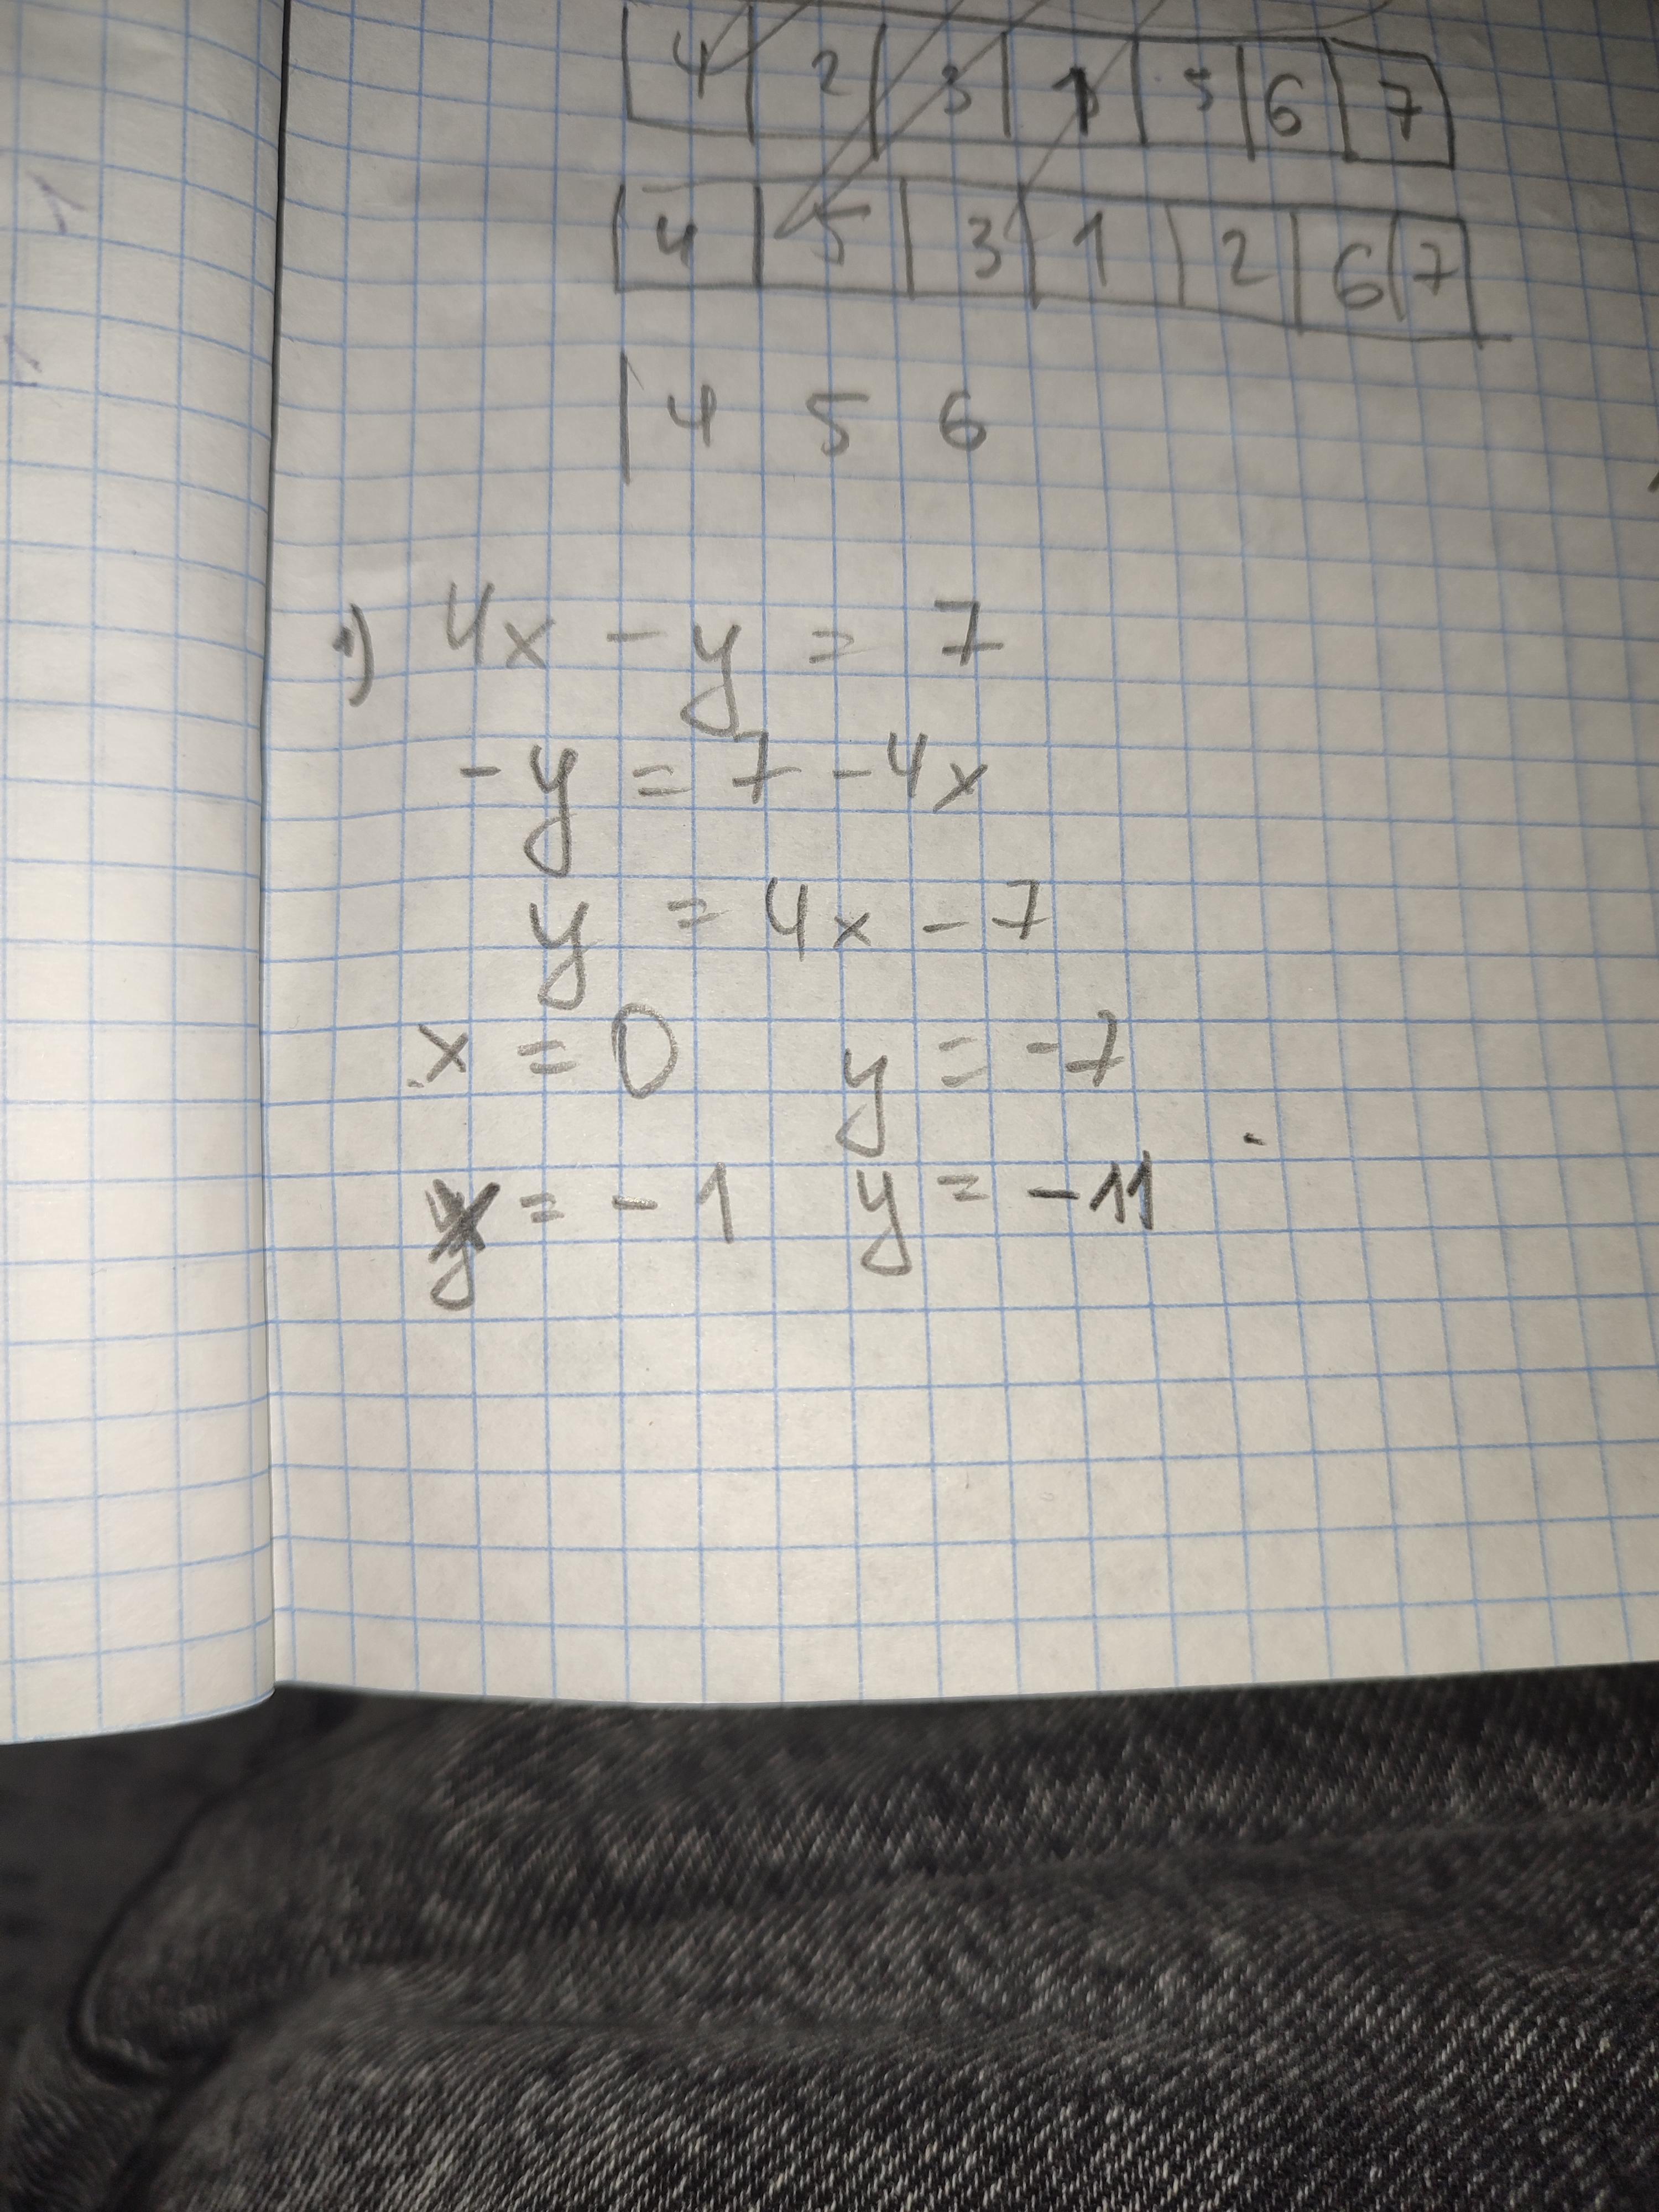 4 2 3 1 5 6 7
4 5 3 1 2 6 7
4 5 6
1) 4x - y = 7
-y = 7 - 4x
y = 4x - 7
x = 0 y = -7
x = -1 y = -11